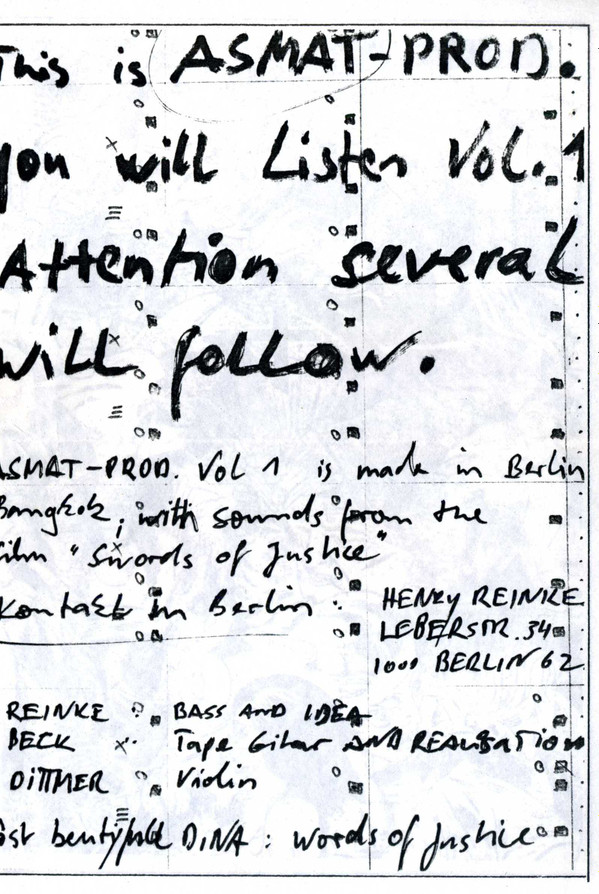 This is ASMAT-PROD.
you will Listen Vol. 1
Attention several
will follow.
ASMAT-PROD. Vol 1 is made in Berlin
Bangkok, with sounds from the
film "Swords of Justice"
Kontakt in Berlin : HENRY REINKE
LEBERSTR. 34
1000 BERLIN 62
REINKE : BASS AND IDEA
BECK Tape Gitar AND REALISATION
DITTMER Violin
DINA : words of Justice